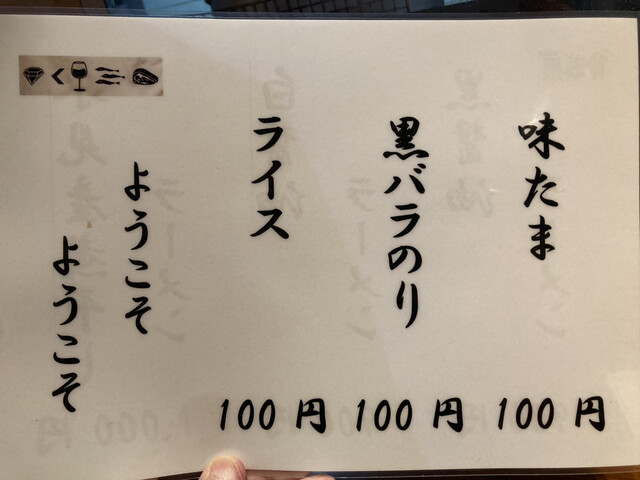 味たま
100円
黒バラのり
100円
ライス
100円
ようこそ
ようこそ